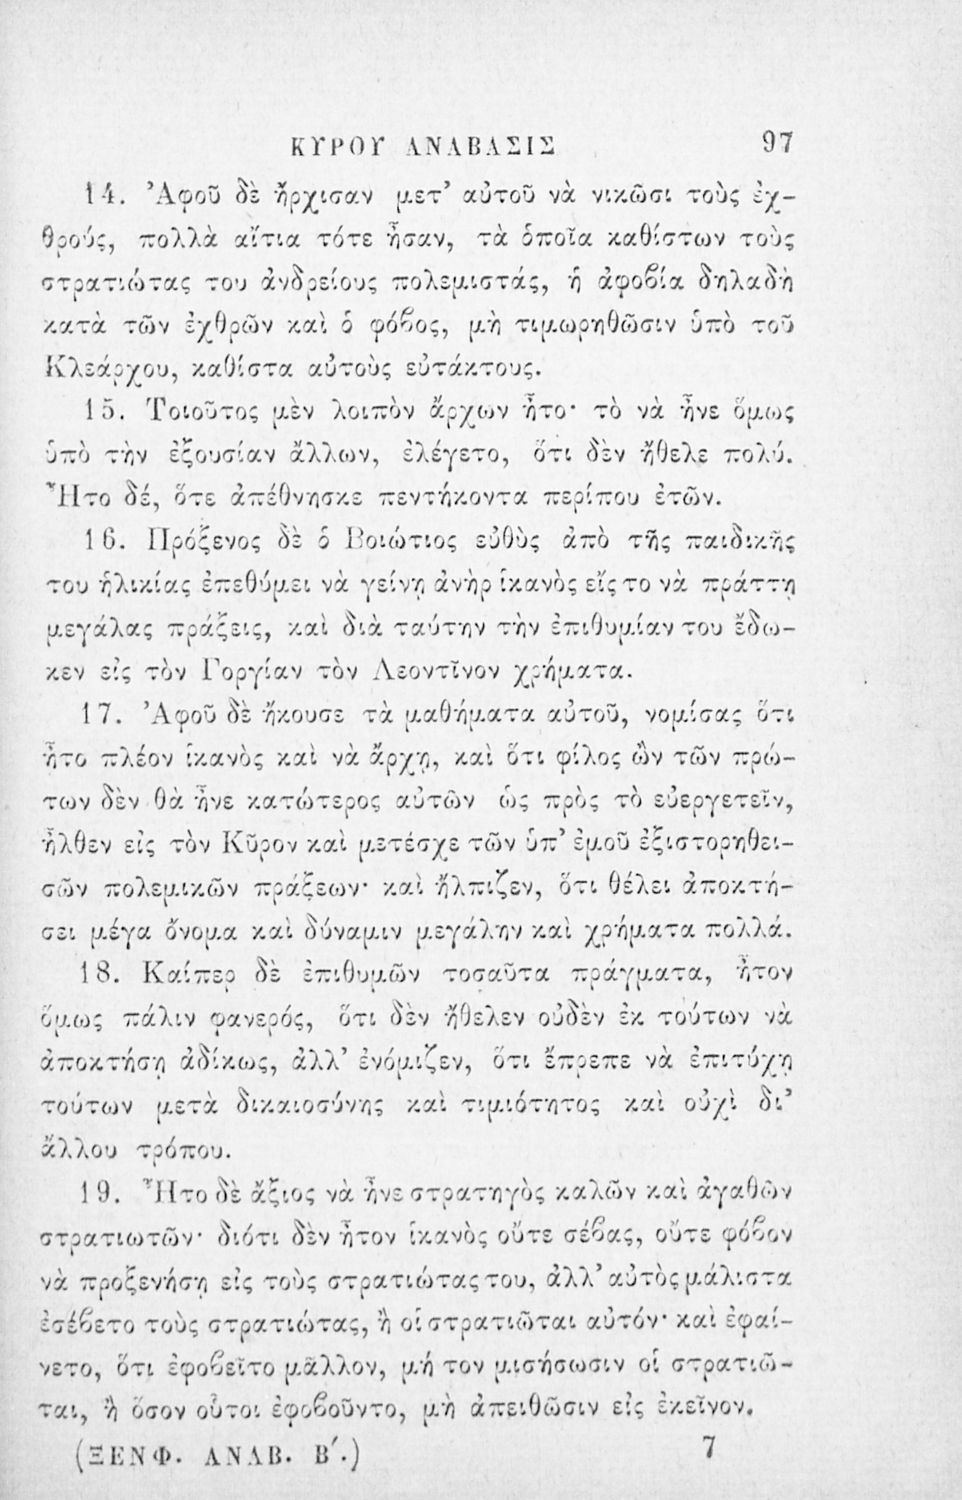 ΚΥΡΟΥ ΑΝΑΒΑΣΙΣ 97
14. Ἀφοῦ δὲ ἤρχισαν μετ’ αὐτοῦ νὰ νικῶσι τοὺς ἐχ-
θρούς, πολλὰ αἴτια τότε ἦσαν, τὰ ὁποῖα καθίστων τοὺς
στρατιώτας του ἀνδρείους πολεμιστάς, ἡ ἀφοβία δηλαδὴ
κατὰ τῶν ἐχθρῶν καὶ ὁ φόβος, μὴ τιμωρηθῶσιν ὑπὸ τοῦ
Κλεάρχου, καθίστα αὐτοὺς εὐτάκτους.
15. Τοιοῦτος μὲν λοιπὸν ἄρχων ἦτο· τὸ νὰ ἦνε ὅμως
ὑπὸ τὴν ἐξουσίαν ἄλλων, ἐλέγετο, ὅτι δὲν ἤθελε πολύ.
Ἦτο δέ, ὅτε ἀπέθνησκε πεντήκοντα περίπου ἐτῶν.
16. Πρόξενος δὲ ὁ Βοιώτιος εὐθὺς ἀπὸ τῆς παιδικῆς
του ἡλικίας ἐπεθύμει νὰ γείνῃ ἀνὴρ ἱκανὸς εἴς το νὰ πράττῃ
μεγάλας πράξεις, καὶ διὰ ταύτην τὴν ἐπιθυμίαν του ἔδω-
κεν εἰς τὸν Γοργίαν τὸν Λεοντῖνον χρήματα.
17. Ἀφοῦ δὲ ἤκουσε τὰ μαθήματα αὐτοῦ, νομίσας ὅτι
ἦτο πλέον ἱκανὸς καὶ νὰ ἄρχῃ, καὶ ὅτι φίλος ὢν τῶν πρώ-
των δὲν θὰ ἦνε κατώτερος αὐτῶν ὡς πρὸς τὸ εὐεργετεῖν,
ἦλθεν εἰς τὸν Κῦρον καὶ μετέσχε τῶν ὑπ’ ἐμοῦ ἐξιστορηθει-
σῶν πολεμικῶν πράξεων· καὶ ἤλπιζεν, ὅτι θέλει ἀποκτή-
σει μέγα ὄνομα καὶ δύναμιν μεγάλην καὶ χρήματα πολλά.
18. Καίπερ δὲ ἐπιθυμῶν τοσαῦτα πράγματα, ἦτον
ὅμως πάλιν φανερός, ὅτι δὲν ἤθελεν οὐδὲν ἐκ τούτων νὰ
ἀποκτήσῃ ἀδίκως, ἀλλ’ ἐνόμιζεν, ὅτι ἔπρεπε νὰ ἐπιτύχῃ
τούτων μετὰ δικαιοσύνης καὶ τιμιότητος καὶ οὐχὶ δι’
ἄλλου τρόπου.
19. Ἦτο δὲ ἄξιος νὰ ἦνε στρατηγὸς καλῶν καὶ ἀγαθῶν
στρατιωτῶν· διότι δὲν ἦτον ἱκανὸς οὔτε σέβας, οὔτε φόβον
νὰ προξενήσῃ εἰς τοὺς στρατιώτας του, ἀλλ’ αὐτὸς μάλιστα
ἐσέβετο τοὺς στρατιώτας, ἢ οἱ στρατιῶται αὐτόν· καὶ ἐφαί-
νετο, ὅτι ἐφοβεῖτο μᾶλλον, μή τον μισήσωσιν οἱ στρατιῶ-
ται, ἢ ὅσον οὗτοι ἐφοβοῦντο, μὴ ἀπειθῶσιν εἰς ἐκεῖνον.
(ΞΕΝΦ. ΑΝΑΒ. Β΄.) 7